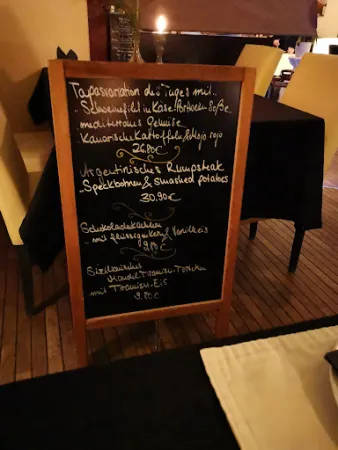 Tapasvariation des Tages mit..
- Schweinefilet in Käse-Portwein Soße
mediterranes Gemüse
Kanarische Kartoffeln & Mojo rojo
26.80€
Argentinisches Rumpsteak
- Speckbohnen & smashed potatoes
30.90€
Schokoladeküchlein
- mit flüssigem Kern, Vanilleis
Sizilianisches
Mandel Tiramisu-Törtchen
mit Tiramisu-Eis
9.80€